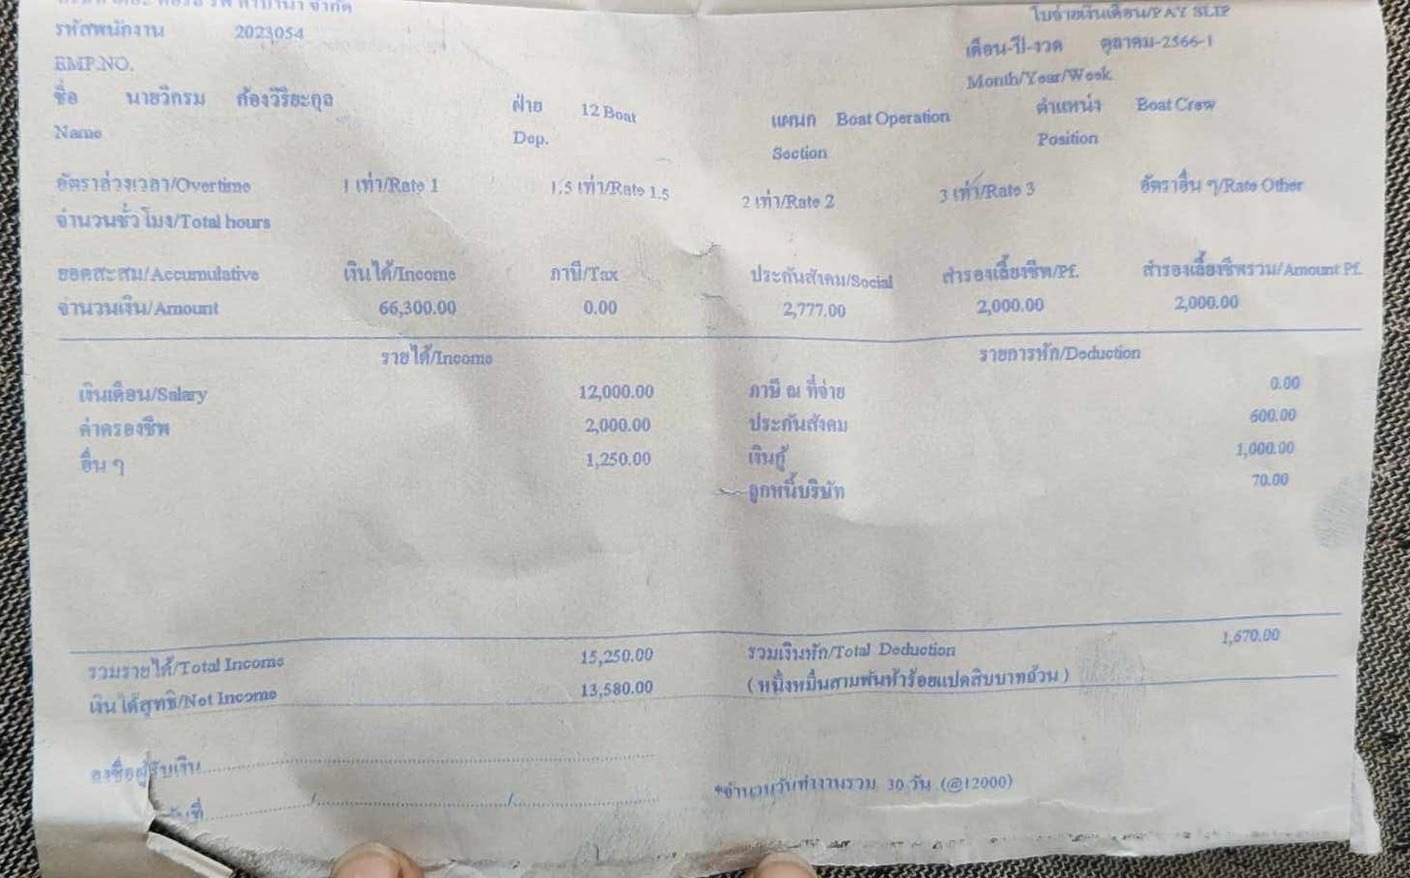 จำกัด
ใบจ่ายเงินเดือน/PAY SLIP
รหัสพนักงาน 2023054
เดือน-ปี-งวด ตุลาคม-2566-1
EMP.NO.
Month/Year/Week
ชื่อ นายวิกรม ก้องวิริยะกุล ฝ่าย 12 Boat แผนก Boat Operation ตำแหน่ง Boat Crew
Name Dep. Section Position
อัตราล่วงเวลา/Overtime 1 เท่า/Rate 1 1.5 เท่า/Rate 1.5 2 เท่า/Rate 2 3 เท่า/Rate 3 อัตราอื่น ๆ/Rate Other
จำนวนชั่วโมง/Total hours
ยอดสะสม/Accumulative เงินได้/Income ภาษี/Tax ประกันสังคม/Social สำรองเลี้ยงชีพ/Pf. สำรองเลี้ยงชีพรวม/Amount Pf.
จำนวนเงิน/Amount 66,300.00 0.00 2,777.00 2,000.00 2,000.00
รายได้/Income รายการหัก/Deduction
เงินเดือน/Salary 12,000.00 ภาษี ณ ที่จ่าย 0.00
ค่าครองชีพ 2,000.00 ประกันสังคม 600.00
อื่น ๆ 1,250.00 เงินกู้ 1,000.00
ลูกหนี้บริษัท 70.00
รวมรายได้/Total Income 15,250.00 รวมเงินหัก/Total Deduction 1,670.00
เงินได้สุทธิ/Net Income 13,580.00 (หนึ่งหมื่นสามพันห้าร้อยแปดสิบบาทถ้วน)
ลงชื่อผู้รับเงิน....................
*จำนวนวันทำงานรวม 30 วัน (@12000)
วันที่............/............/............